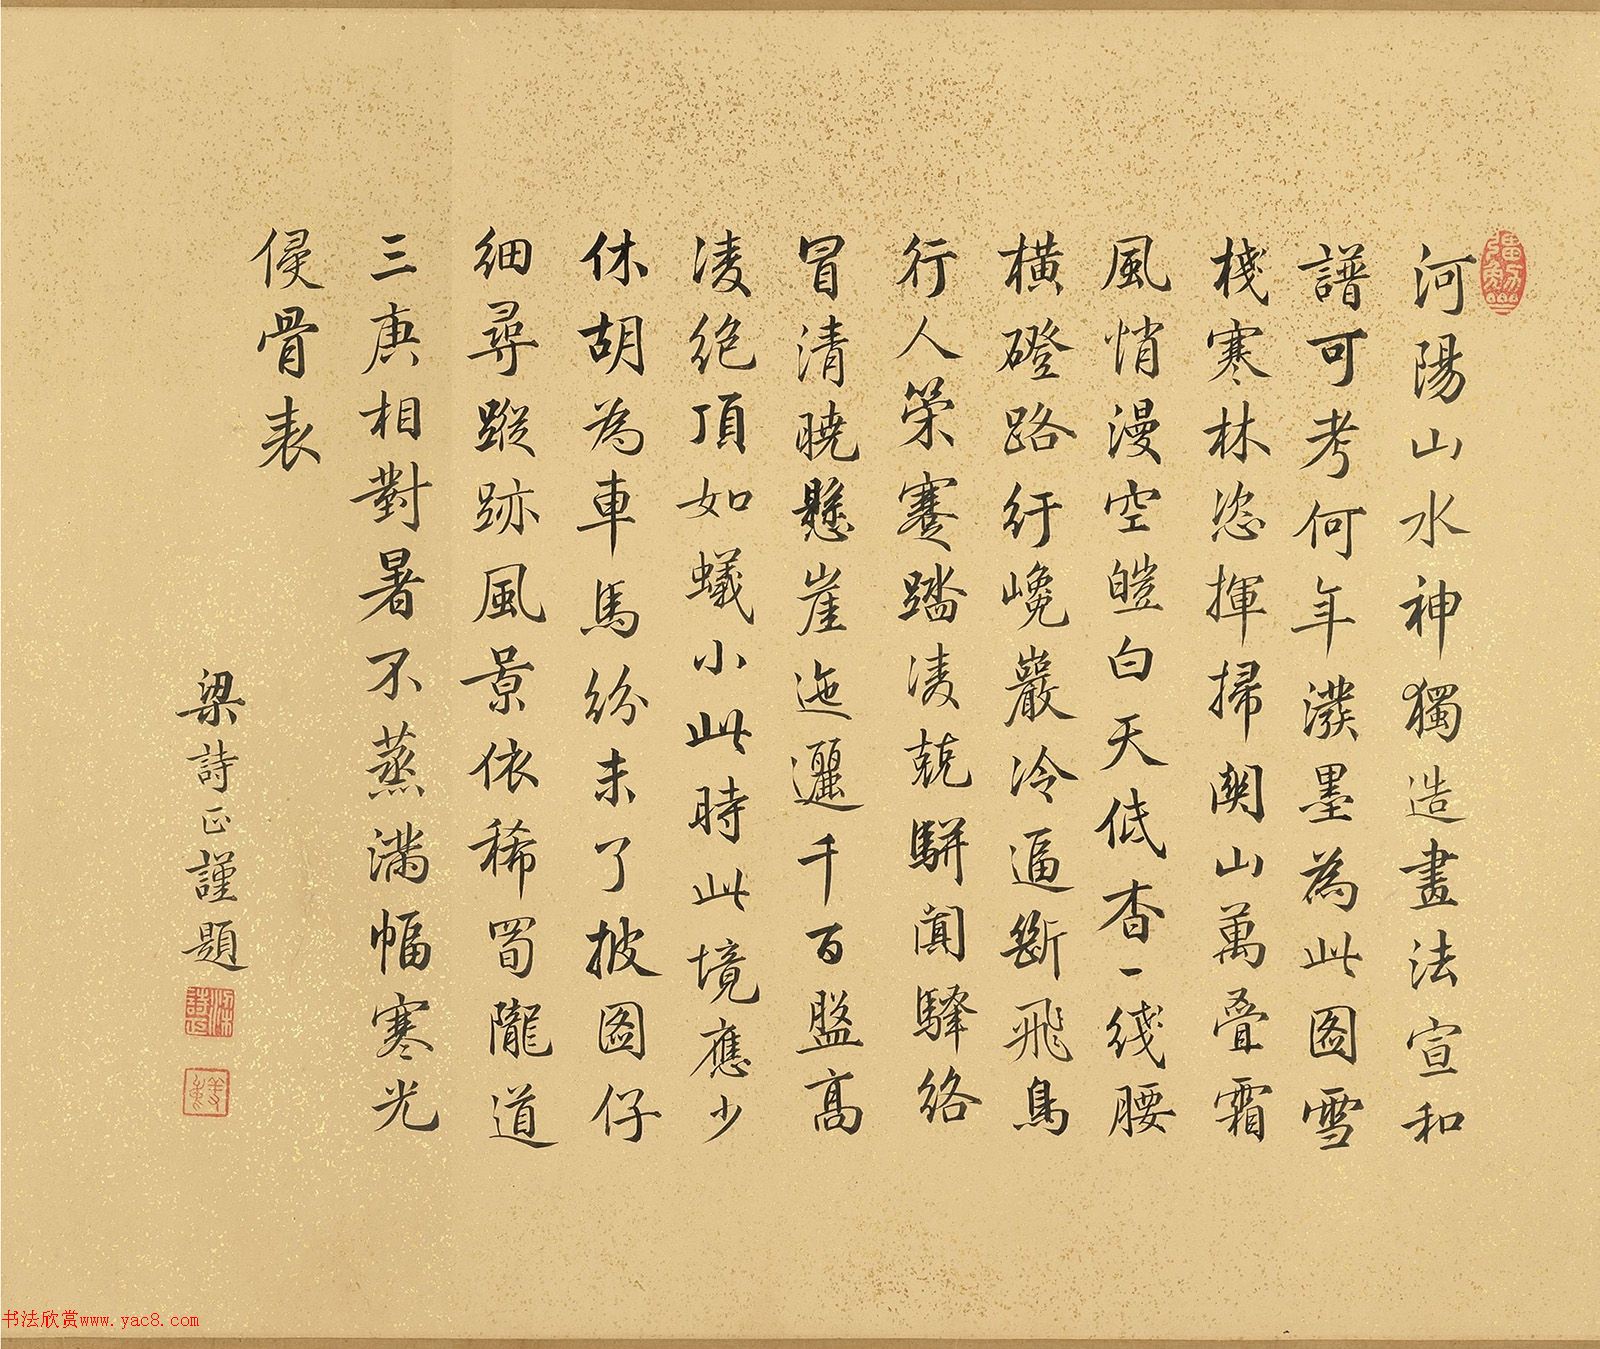 河陽山水神獨造畫法宣和
譜可考何年潑墨為此圖雪
棧寒林恣揮掃關山萬疊霜
風悄漫空皚白天低杳一綫腰
橫磴路紆巉巖冷逼斷飛鳥
行人策蹇踏凌兢駢闐驛絡
冒清曉懸崖迤邐千百盤高
凌絕頂如蟻小此時此境應少
休胡為車馬紛未了披圖仔
細尋蹤跡風景依稀蜀隴道
三庚相對暑不蒸滿幅寒光
侵骨表
梁詩正謹題
书法欣赏www.yac8.com